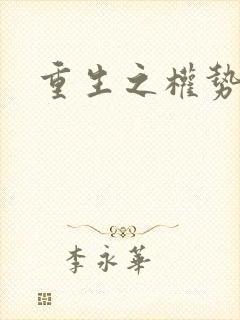 重生之權勢
李永華